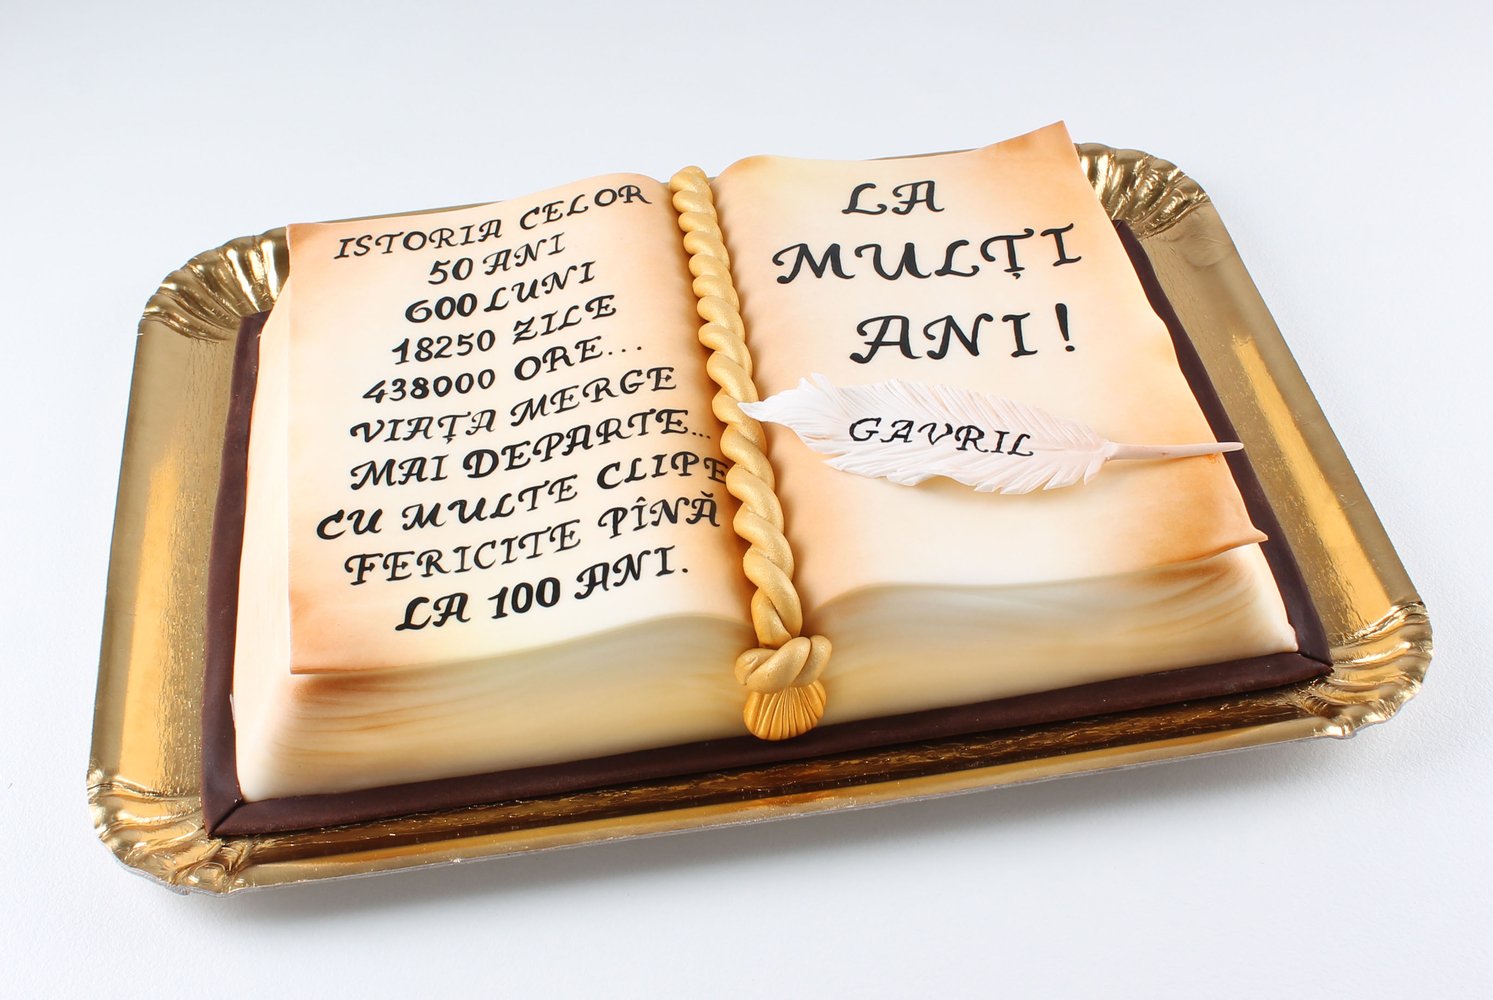 ISTORIA CELOR
50 ANI
600 LUNI
18250 ZILE
438000 ORE...
VIAȚA MERGE
MAI DEPARTE...
CU MULTE CLIPE
FERICITE PÎNĂ
LA 100 ANI.
LA
MULȚI
ANI!
GAVRIL